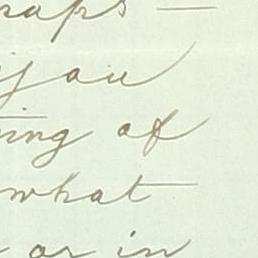 raps —
you
ing of
what
or in